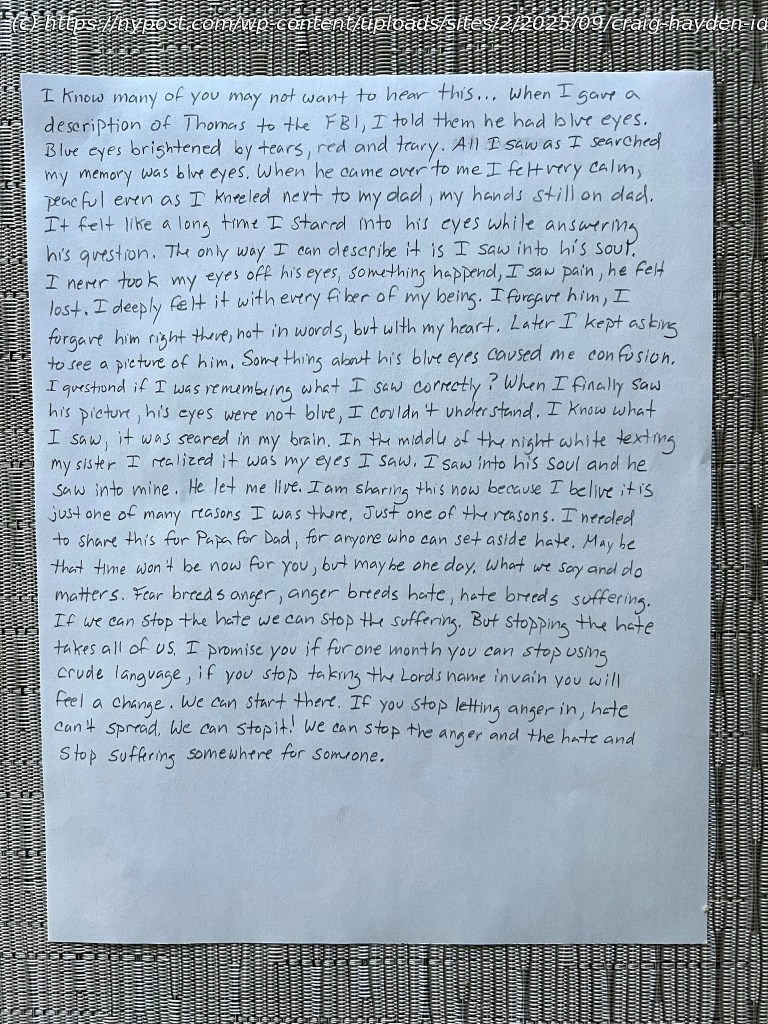 (c) https://nypost.com/wp-content/uploads/sites/2/2025/09/craig-hayden-id
I know many of you may not want to hear this... when I gave a
description of Thomas to the FBI, I told them he had blue eyes.
Blue eyes brightened by tears, red and teary. All I saw as I searched
my memory was blue eyes. When he came over to me I felt very calm,
peacful even as I kneeled next to my dad, my hands still on dad.
It felt like a long time I stared into his eyes while answering
his question. The only way I can describe it is I saw into his soul.
I never took my eyes off his eyes, something happend, I saw pain, he felt
lost. I deeply felt it with every fiber of my being. I forgave him, I
forgave him right there, not in words, but with my heart. Later I kept asking
to see a picture of him. Something about his blue eyes caused me confusion.
I questiond if I was remembering what I saw correctly? When I finally saw
his picture, his eyes were not blue, I couldn't understand. I know what
I saw, it was seared in my brain. In the middle of the night while texting
my sister I realized it was my eyes I saw. I saw into his soul and he
saw into mine. He let me live. I am sharing this now because I belive it is
just one of many reasons I was there. Just one of the reasons. I needed
to share this for Papa for Dad, for anyone who can set aside hate. May be
that time won't be now for you, but maybe one day. What we say and do
matters. Fear breeds anger, anger breeds hate, hate breeds suffering.
If we can stop the hate we can stop the suffering. But stopping the hate
takes all of us. I promise you if for one month you can stop using
crude language, if you stop taking the Lords name in vain you will
feel a change. We can start there. If you stop letting anger in, hate
can't spread. We can stop it! We can stop the anger and the hate and
stop suffering somewhere for someone.